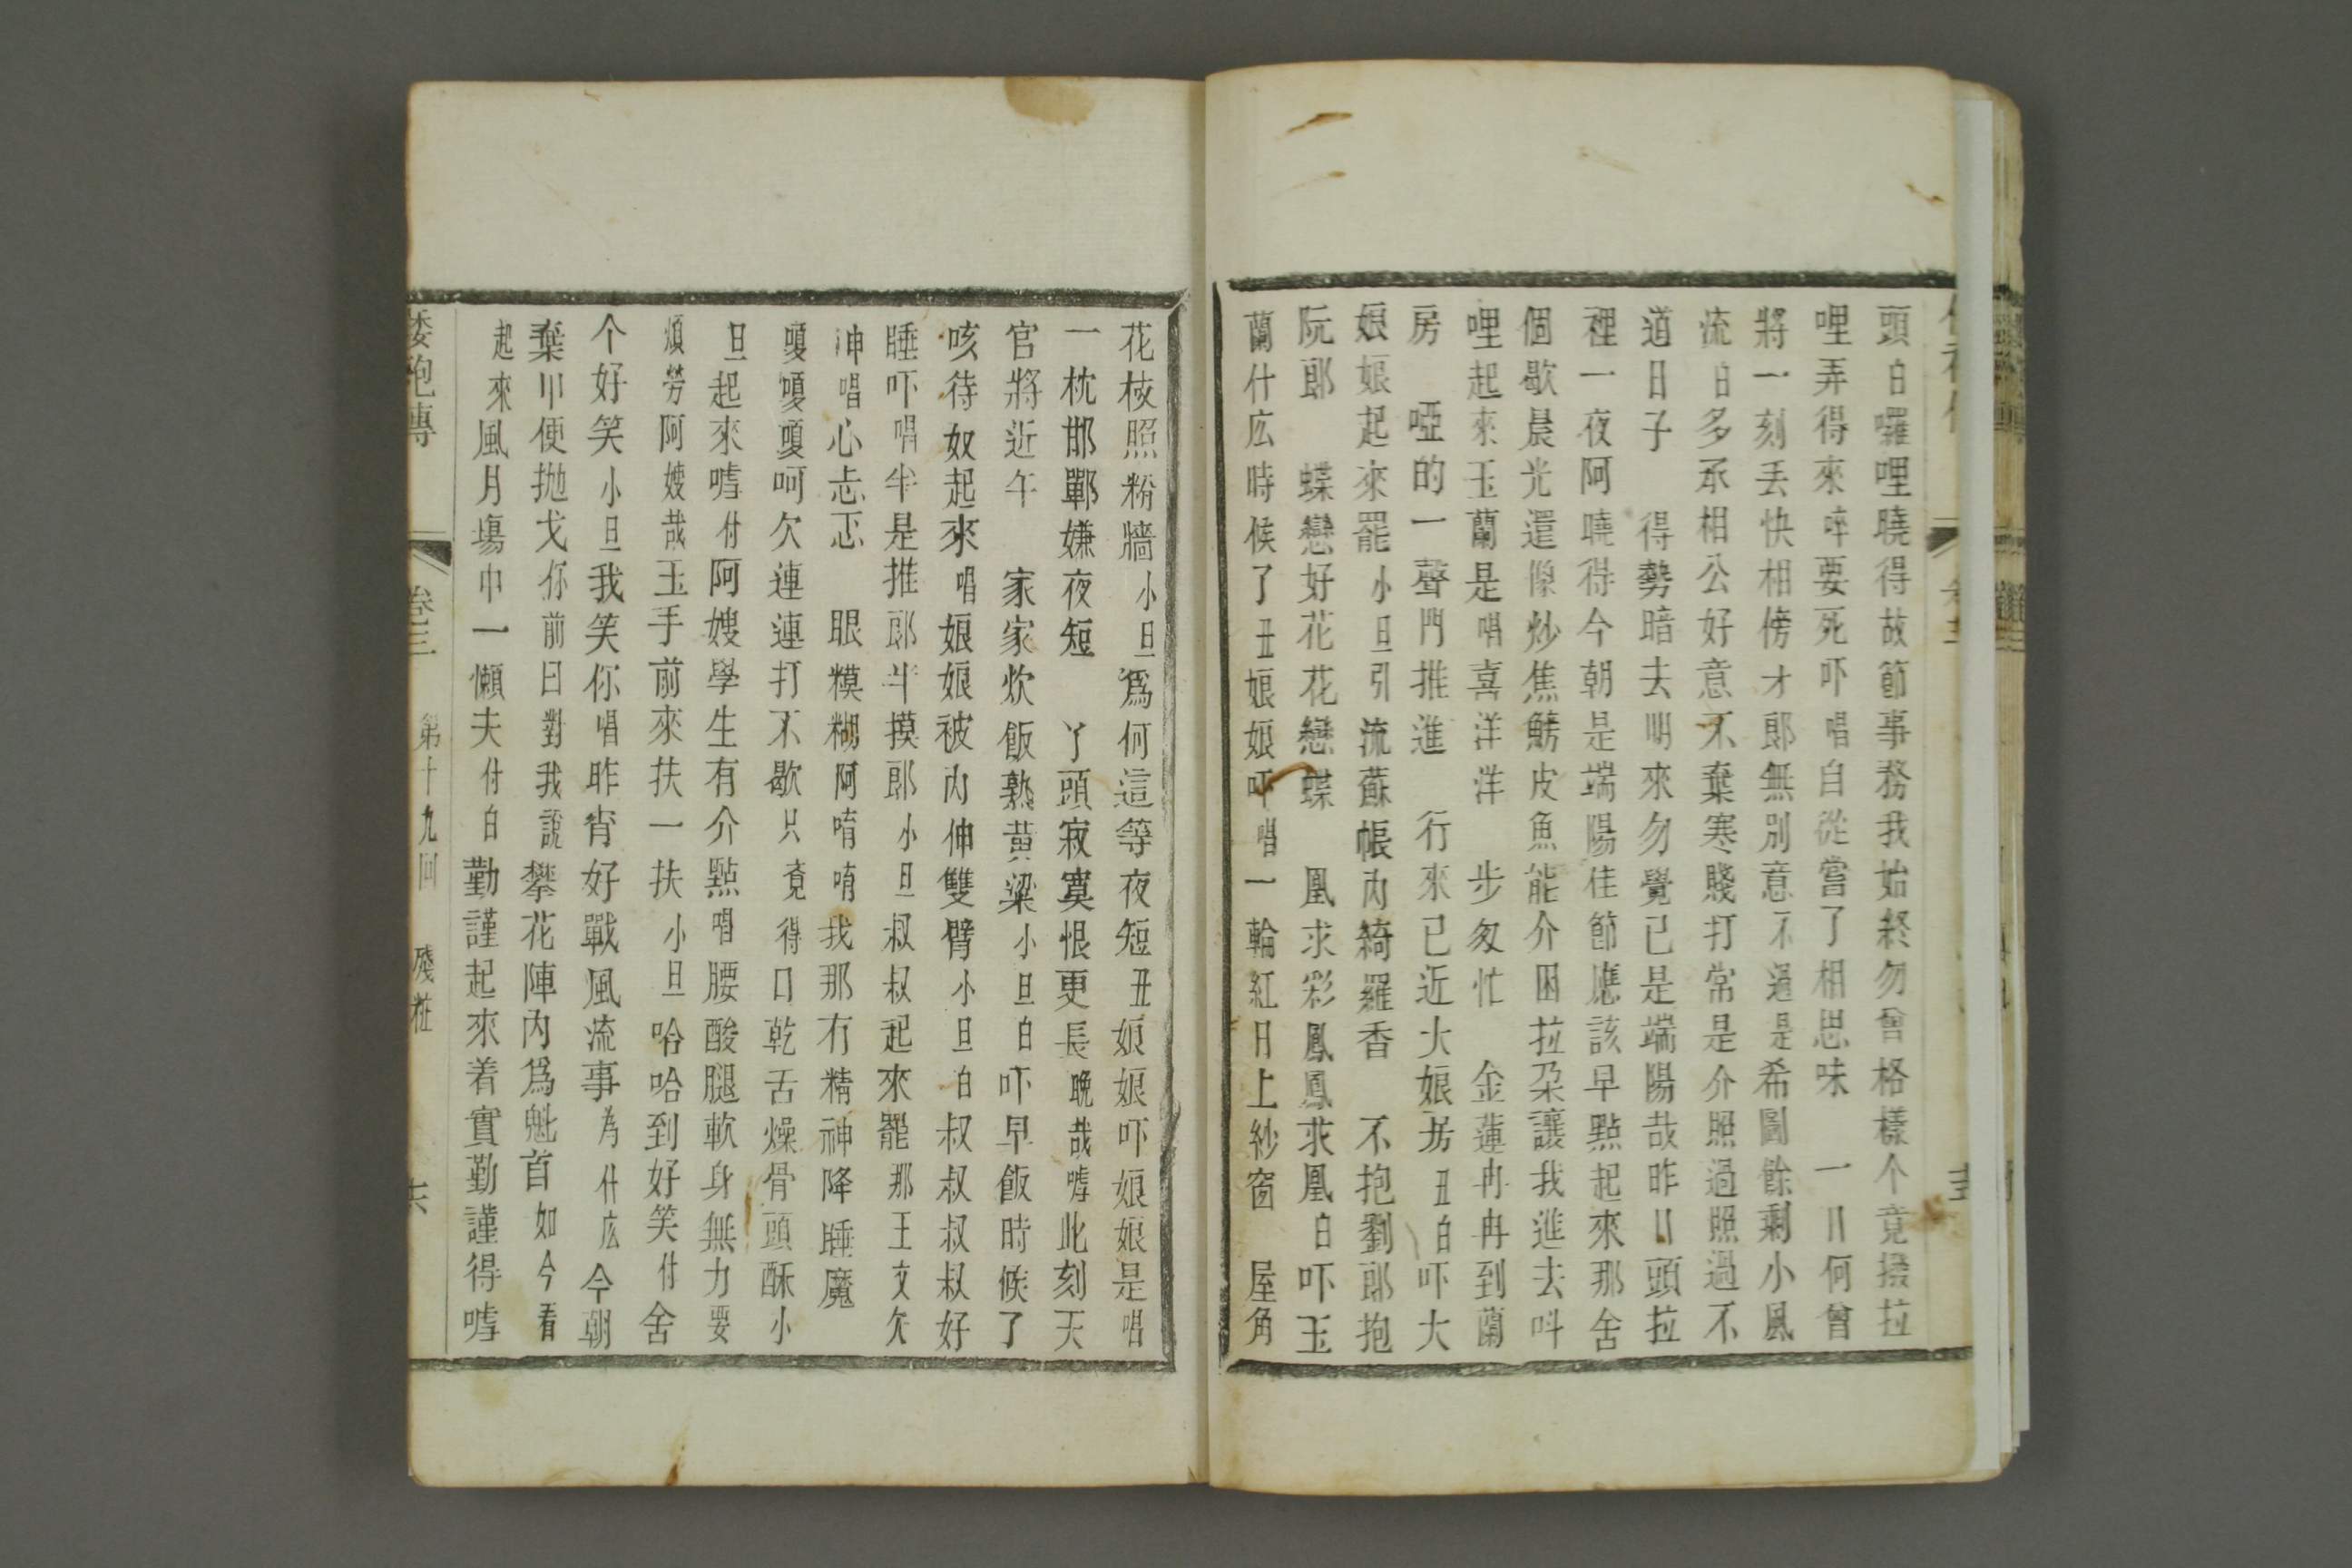 頭白囉哩曉得故節事務我始終勿曾格樣个竟撥拉
哩弄得來啐要死吓唱自從嘗了相思味 一日何曾
將一刻丢快相傍才郎無別意不過是希圖餘剩小風
流白多承相公好意不棄寒賤打常是介照過照過不
道日子 得勢暗去明來勿覺已是端陽哉昨日頭拉
裡一夜阿曉得今朝是端陽佳節應該早點起來那舍
個歇晨光還像炒焦鰟皮魚能介困拉朶讓我進去呌
哩起來玉蘭是唱喜洋洋 步匆忙 金蓮冉冉到蘭
房 啞的一聲門推進 行來已近大娘房丑白吓大
娘娘起來罷小旦引流蘇帳內綺羅香 不抱劉郎抱
阮郎 蝶戀好花花戀蝶 凰求彩鳳鳳求凰白吓玉
蘭什庅時候了丑娘娘吓唱一輪紅日上紗窗 屋角
花枝照粉牆小旦爲何這等夜短丑娘娘吓娘娘是唱
一枕邯鄲嫌夜短 丫頭寂寞恨更長晩哉嘑此刻天
官將近午 家家炊飯熟黃粱小旦白吓早飯時候了
咳待奴起來唱娘娘被內伸雙臂小旦白叔叔叔叔好
睡吓唱半是推郎半摸郎小旦叔叔起來罷那王文欠
伸唱心忐忑 眼糢糊阿唷唷我那冇精神降睡魔
嗄嗄嗄呵欠連連打不歇只竟得口乾舌燥骨頭酥小
旦起來嘑付阿嫂學生有介點唱腰酸腿軟身無力要
煩勞阿嫂哉玉手前來扶一扶小旦哈哈到好笑付舍
个好笑小旦我笑你唱昨宵好戰風流事為什庅今朝
棄甲便拋戈你前日對我說攀花陣內爲魁首如今看
起來風月塲中一懶夫付白勤謹起來着實勤謹得嘑
倭袍傳 卷三 第十九回 殘粧 六